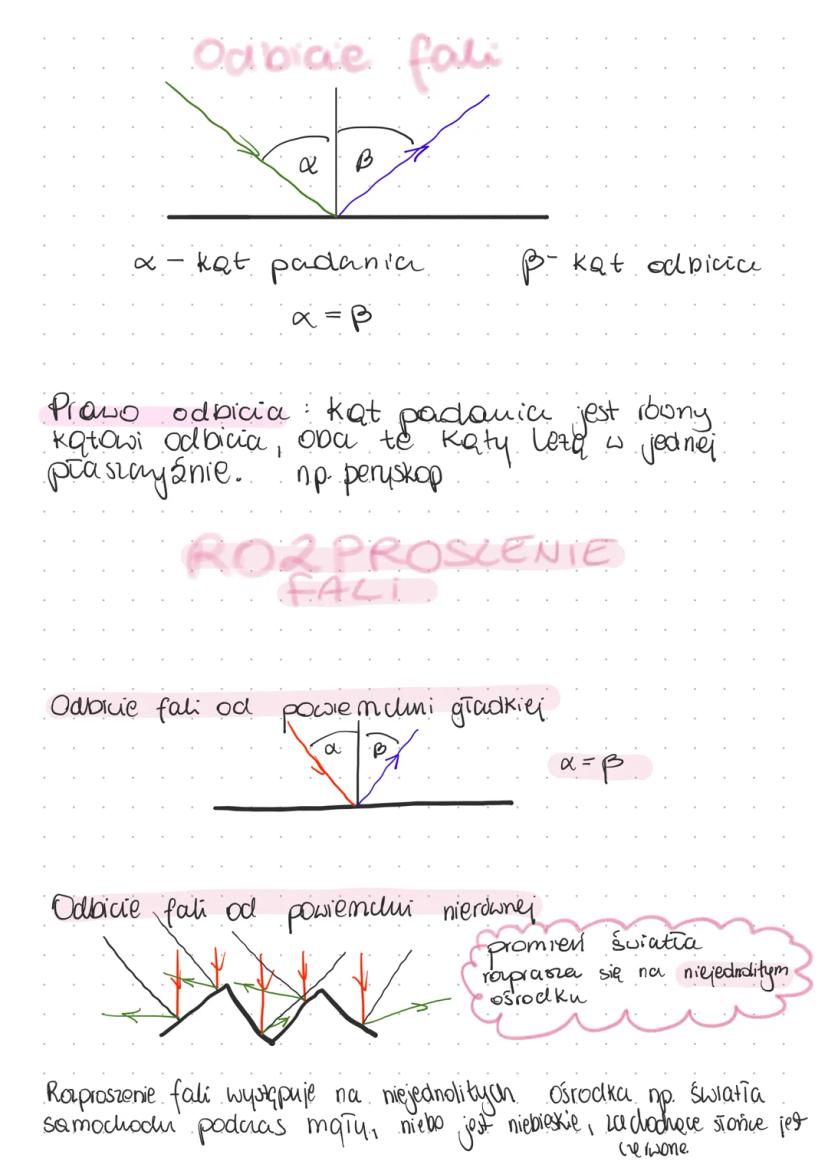 Odbicie fali
α β
α - kąt padania β - kąt odbicia
α = β
Prawo odbicia : kąt padania jest równy
kątowi odbicia, oba te kąty leżą w jednej
płaszczyźnie. np. peryskop
ROZPROSZENIE
FALI
Odbicie fali od powierzchni gładkiej
α β
α = β
Odbicie fali od powierzchni nierównej
promień światła
rozprasza się na niejednolitym
ośrodku
Rozproszenie fali występuje na niejednolitych ośrodka np. światła
samochodu podczas mgły, niebo jest niebieskie, zachodzące słońce jest
czerwone.